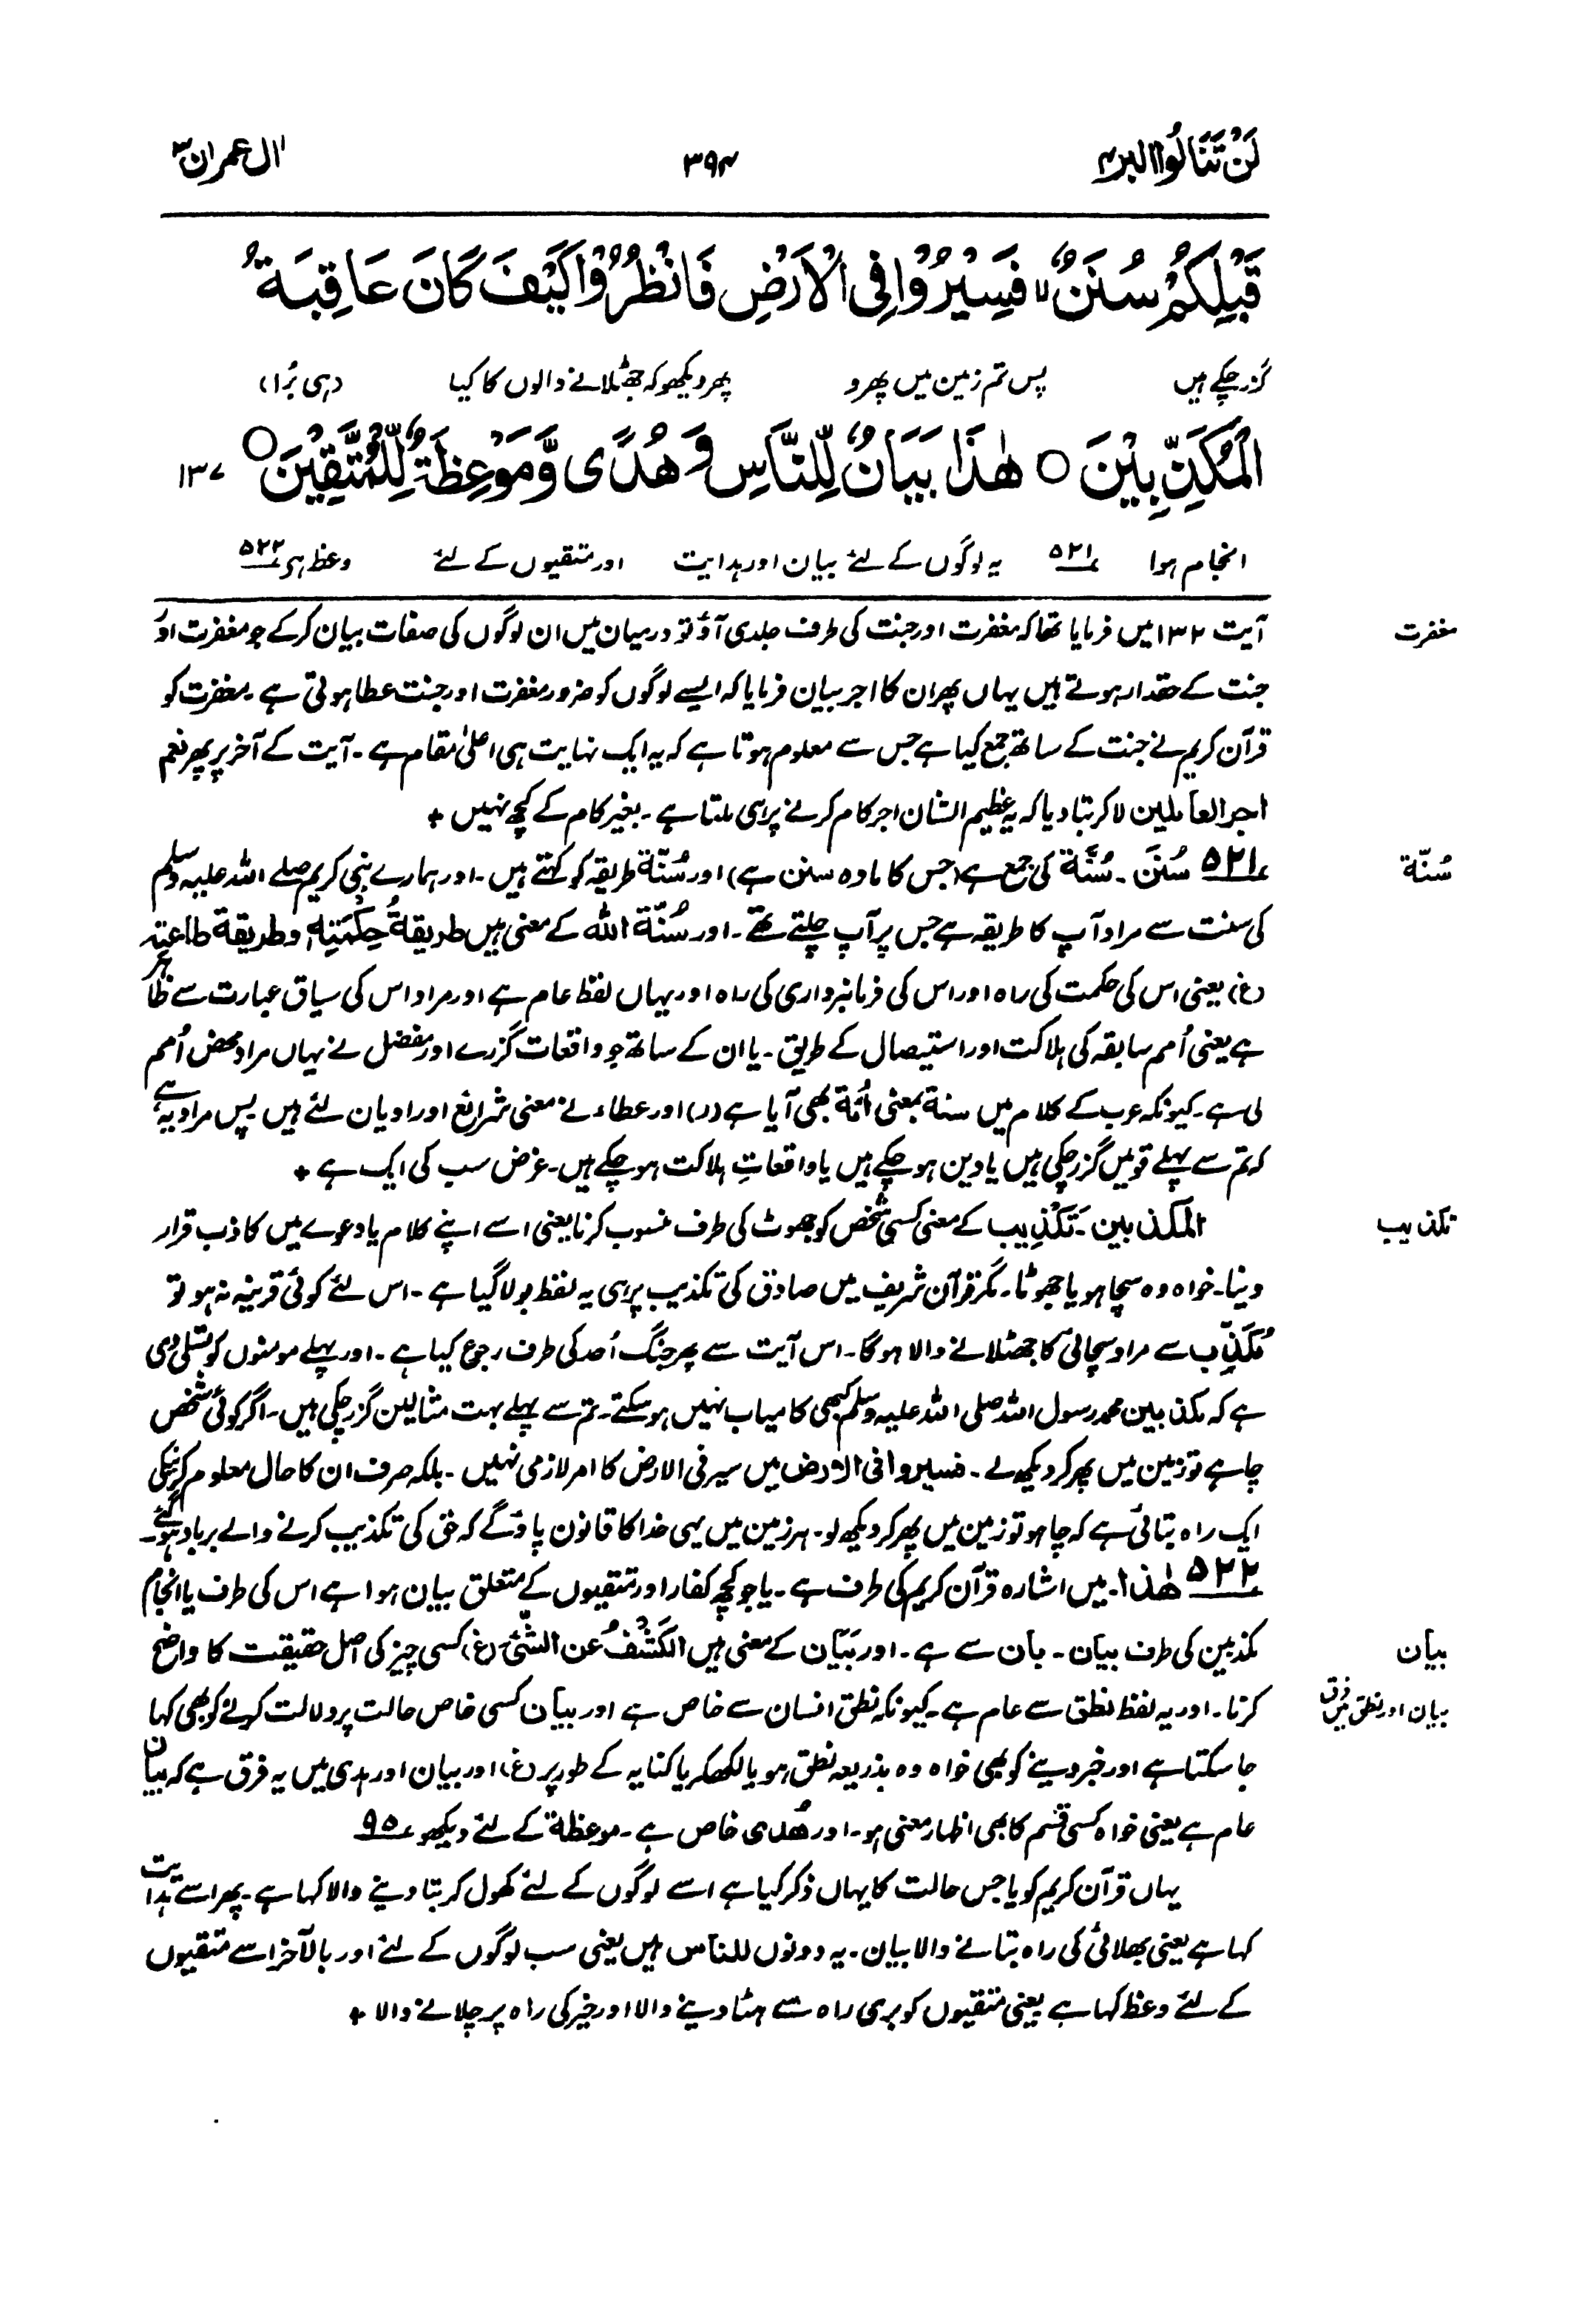 لَنْ تَنَالُوا البر ۴
۳۹۴
اٰل عمران ۳
قَبْلِكُمْ سُنَنٌ ۙ فَسِيْرُوْا فِى الْاَرْضِ فَانْظُرُوْا كَيْفَ كَانَ عَاقِبَةُ
گزر چکے ہیں پس تم زمین میں پھرو پھر دیکھو کہ جھٹلانے والوں کا کیا (ہی بُرا)
الْمُكَذِّبِيْنَ ○ هٰذَا بَيَانٌ لِّلنَّاسِ وَهُدًى وَّمَوْعِظَةٌ لِّلْمُتَّقِيْنَ ○ ۱۳۷
انجام ہوا ۵۲۱ یہ لوگوں کے لئے بیان اور ہدایت اور متقیوں کے لئے وعظ ہی ۵۲۲
مغفرت
آیت ۱۳۲ میں فرمایا تھا کہ مغفرت اور جنت کی طرف جلدی آؤ تو درمیان میں ان لوگوں کی صفات بیان کرکے جو مغفرت اور
جنت کے حقدار ہوتے ہیں یہاں پھر ان کا اجر بیان فرمایا کہ ایسے لوگوں کو ضرور مغفرت اور جنت عطا ہوتی ہے ۔ مغفرت کو
قرآن کریم نے جنت کے ساتھ جمع کیا ہے جس سے معلوم ہوتا ہے کہ یہ ایک نہایت ہی اعلیٰ مقام ہے ۔ آیت کے آخر پر پھر نعم
اجر العاملین لا کر بتا دیا کہ یہ عظیم الشان اجر کام کرنے پر ہی ملتا ہے ۔ بغیر کام کے کچھ نہیں +
سُنّة
۵۲۱ سُنَن ۔ سُنَّة کی جمع ہے (جس کا مادہ سنن ہے) اور سُنّة طریقہ کو کہتے ہیں ۔ اور ہمارے نبی کریم صلے اللہ علیہ وسلم
کی سنت سے مراد آپ کا طریقہ ہے جس پر آپ چلتے تھے ۔ اور سُنّة اللہ کے معنی ہیں طریقةُ حِكْمَتِهٖ وطریقة طاعته
(غ) یعنی اس کی حکمت کی راہ اور اس کی فرمانبرداری کی راہ اور یہاں لفظ عام ہے اور مراد اس کی سیاق عبارت سے ظاہر
ہے یعنی اُمم سابقہ کی ہلاکت اور استیصال کے طریق ۔ یا ان کے ساتھ جو واقعات گزرے اور مفضل نے یہاں مراد محض اُمم
لی ہے ۔ کیونکہ عرب کے کلام میں سنة بمعنی اُمّة بھی آیا ہے (ر) اور عطاء نے معنی شرائع اور ادیان لئے ہیں پس مراد یہ ہے
کہ تم سے پہلے قومیں گزر چکی ہیں یا دین ہو چکے ہیں یا واقعاتِ ہلاکت ہو چکے ہیں ۔ غرض سب کی ایک ہے +
تکذیب
المکذبین ۔ تَكْذِيب کے معنی کسی شخص کو جھوٹ کی طرف منسوب کرنا یعنی اسے اپنے کلام یا دعوے میں کاذب قرار
دینا ۔ خواہ وہ سچا ہو یا جھوٹا ۔ مگر قرآن شریف میں صادق کی تکذیب پر ہی یہ لفظ بولا گیا ہے ۔ اس لئے کوئی قرینہ نہ ہو تو
مُكَذِّب سے مراد سچائی کا جھٹلانے والا ہو گا ۔ اس آیت سے پھر جنگ اُحد کی طرف رجوع کیا ہے ۔ اور پہلے مومنوں کو تسلی دی
ہے کہ مکذبین محمد رسول اللہ صلی اللہ علیہ وسلم کبھی کامیاب نہیں ہو سکتے ۔ تم سے پہلے بہت مثالیں گزر چکی ہیں ۔ اگر کوئی شخص
چاہے تو زمین میں پھر کر دیکھ لے ۔ فسیروا فی الارض میں سیر فی الارض کا امر لازمی نہیں ۔ بلکہ صرف ان کا حال معلوم کرنیکی
ایک راہ بتائی ہے کہ چاہو تو زمین میں پھر کر دیکھ لو ۔ ہر زمین میں یہی خدا کا قانون پاؤ گے کہ حق کی تکذیب کرنے والے برباد ہو گئے ۔
۵۲۲ ھٰذا ۔ میں اشارہ قرآن کریم کی طرف ہے ۔ یا جو کچھ کفار اور متقیوں کے متعلق بیان ہوا ہے اس کی طرف یا انجام
بیان
مکذبین کی طرف بیان ۔ بان سے ہے ۔ اور بَیَان کے معنی ہیں الكَشْفُ عن الشّئ (غ) کسی چیز کی اصل حقیقت کا واضح
بیان اور نطق میں فرق
کرنا ۔ اور یہ لفظ نطق سے عام ہے ۔ کیونکہ نطق انسان سے خاص ہے اور بیان کسی خاص حالت پر دلالت کرنے کو بھی کہا
جا سکتا ہے اور خبر دینے کو بھی خواہ وہ بذریعہ نطق ہو یا لکھکر یا کنایہ کے طور پر (غ) اور بیان اور ہدی میں یہ فرق ہے کہ بیان
عام ہے یعنی خواہ کسی قسم کا بھی اظہار معنی ہو ۔ اور ھُدی خاص ہے ۔ موعظة کے لئے دیکھو ۹۵
یہاں قرآن کریم کو یا جس حالت کا یہاں ذکر کیا ہے اسے لوگوں کے لئے کھول کر بتا دینے والا کہا ہے ۔ پھر اسے ہدایت
کہا ہے یعنی بھلائی کی راہ بتانے والا بیان ۔ یہ دونوں للناس ہیں یعنی سب لوگوں کے لئے اور بالآخر اسے متقیوں
کے لئے وعظ کہا ہے یعنی متقیوں کو بری راہ سے ہٹا دینے والا اور خیر کی راہ پر چلانے والا +